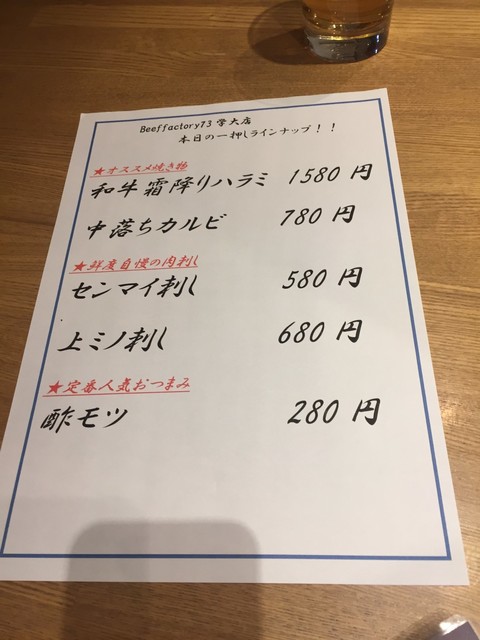 Beeffactory73 学大店
本日の一押しラインナップ！！
★オススメ焼き物
和牛霜降りハラミ 1580 円
中落ちカルビ 780 円
★鮮度自慢の肉刺し
センマイ刺し 580 円
上ミノ刺し 680 円
★定番人気おつまみ
酢モツ 280 円